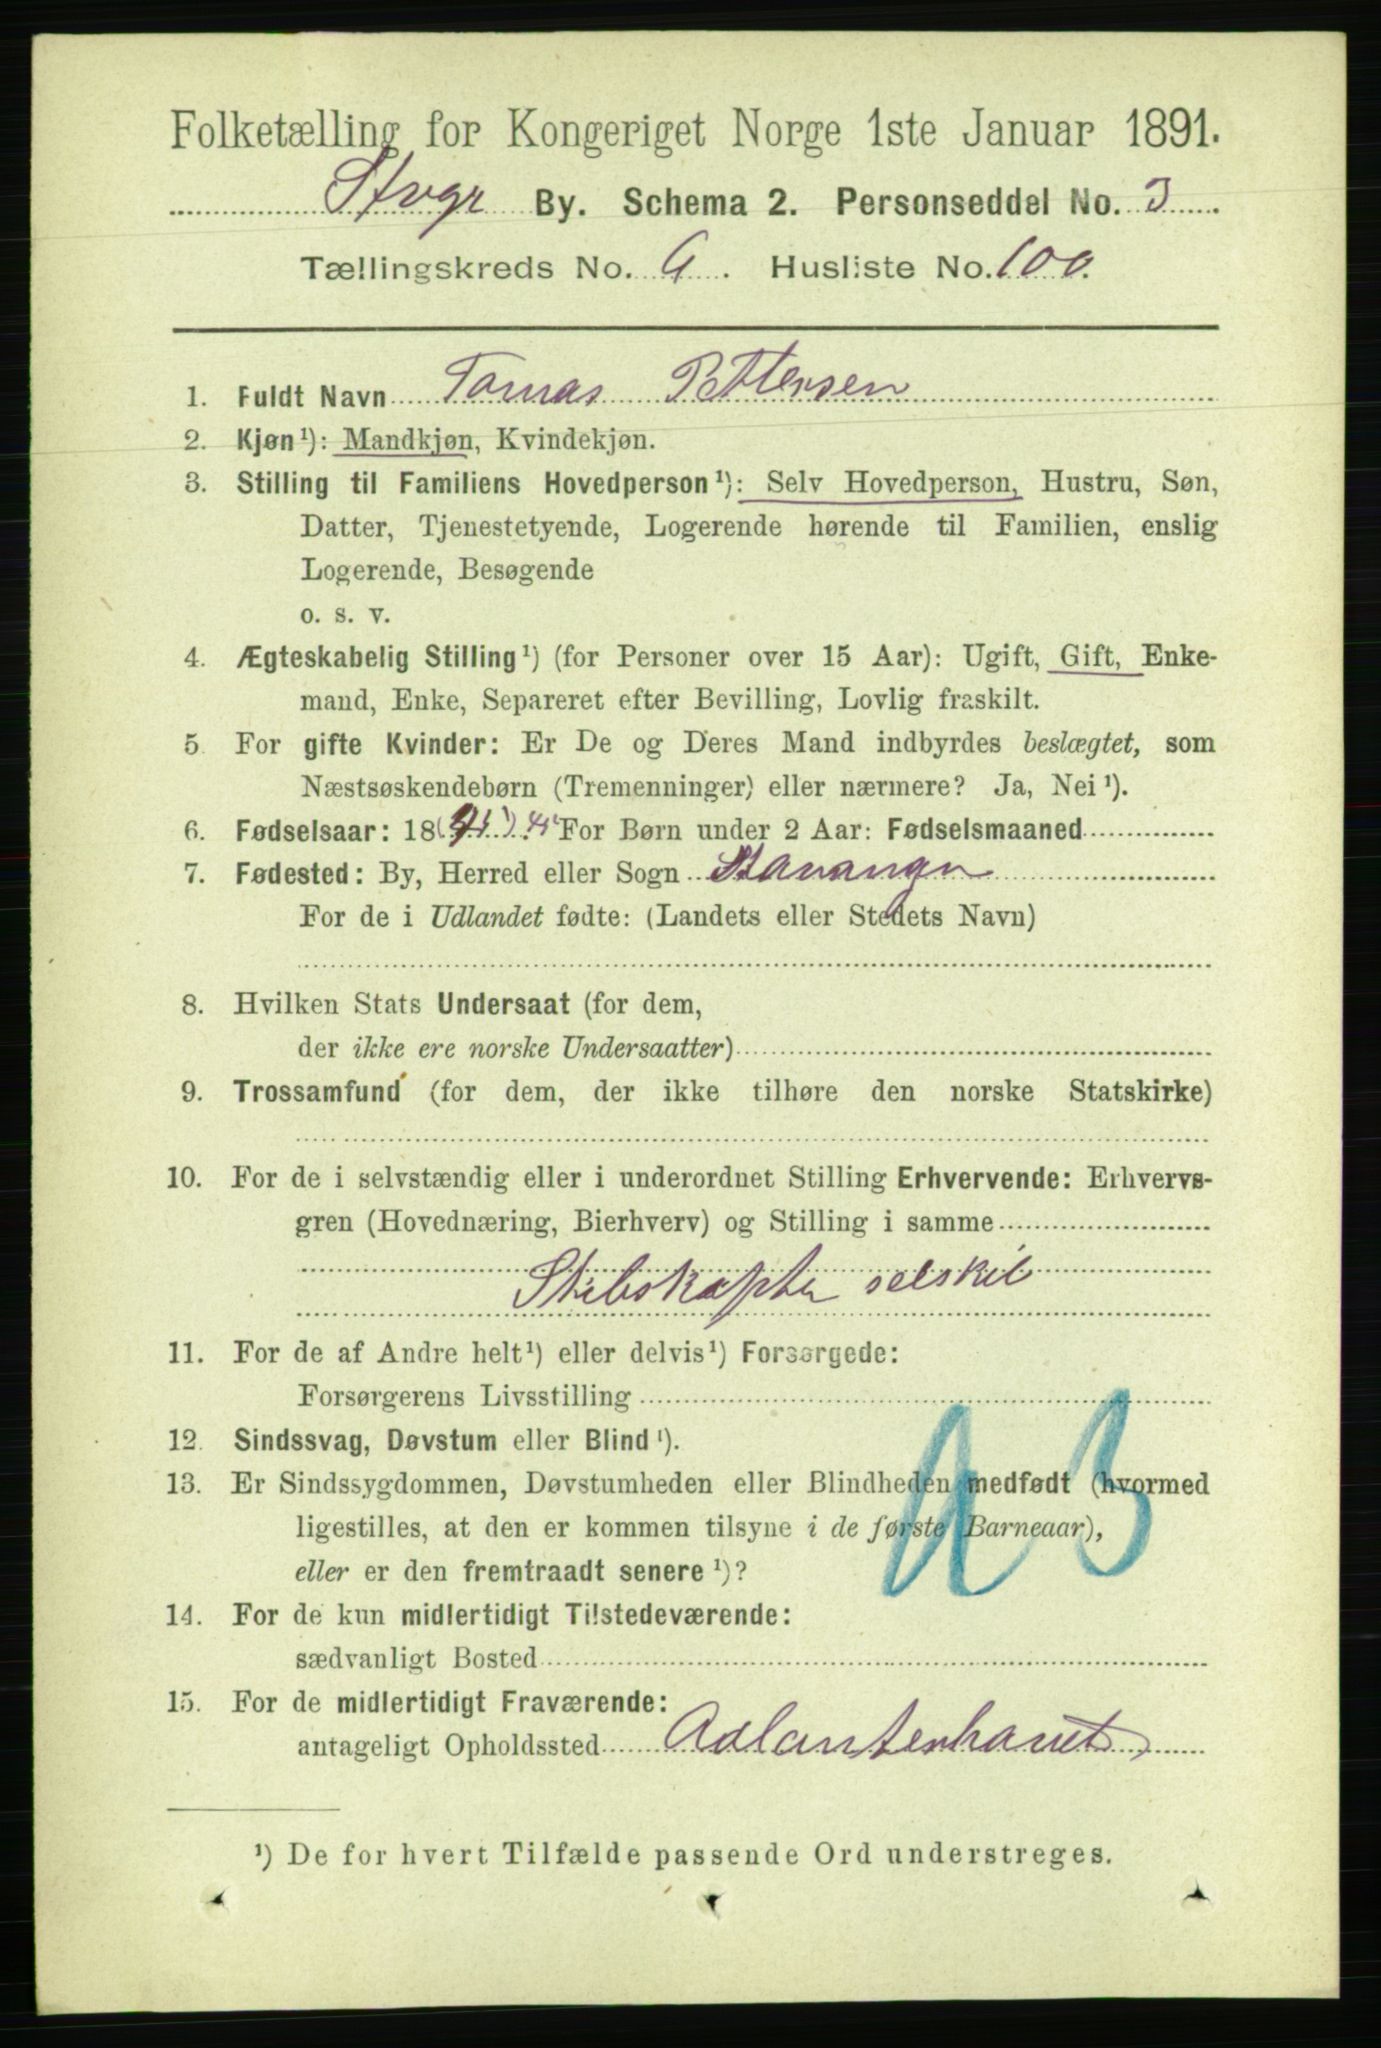 Folketælling for Kongeriget Norge 1ste Januar 1891.
Stvgr By. Schema 2. Personseddel No. 3
Tællingskreds No. 9. Husliste No. 100.
1. Fuldt Navn Tomas Pettersen
2. Kjøn¹): Mandkjøn, Kvindekjøn.
3. Stilling til Familiens Hovedperson¹): Selv Hovedperson, Hustru, Søn,
Datter, Tjenestetyende, Logerende hørende til Familien, enslig
Logerende, Besøgende
o. s. v.
4. Ægteskabelig Stilling¹) (for Personer over 15 Aar): Ugift, Gift, Enke-
mand, Enke, Separeret efter Bevilling, Lovlig fraskilt.
5 For gifte Kvinder: Er De og Deres Mand indbyrdes beslægtet, som
Næstsøskendebørn (Tremenninger) eller nærmere? Ja, Nei¹).
6. Fødselsaar: 18 For Børn under 2 Aar: Fødselsmaaned
7. Fødested: By, Herred eller Sogn Stavanger
For de i Udlandet fødte: (Landets eller Stedets Navn)
8. Hvilken Stats Undersaat (for dem,
der ikke ere norske Undersaatter)
9. Trossamfund (for dem, der ikke tilhøre den norske Statskirke)
10. For de i selvstændig eller i underordnet Stilling Erhvervende: Erhvervs-
gren (Hovednæring, Bierhverv) og Stilling i samme
Skibskapten seilskib
11. For de af Andre helt¹) eller delvis¹) Forsørgede:
Forsørgerens Livsstilling
12. Sindssvag, Døvstum eller Blind¹).
13. Er Sindssygdommen, Døvstumheden eller Blindheden medfødt (hvormed
ligestilles, at den er kommen tilsyne i de første Barneaar),
eller er den fremtraadt senere¹)?
14. For de kun midlertidigt Tilstedeværende:
sædvanligt Bosted
15. For de midlertidigt Fraværende:
antageligt Opholdssted Adlantenhavet
¹) De for hvert Tilfælde passende Ord understreges.